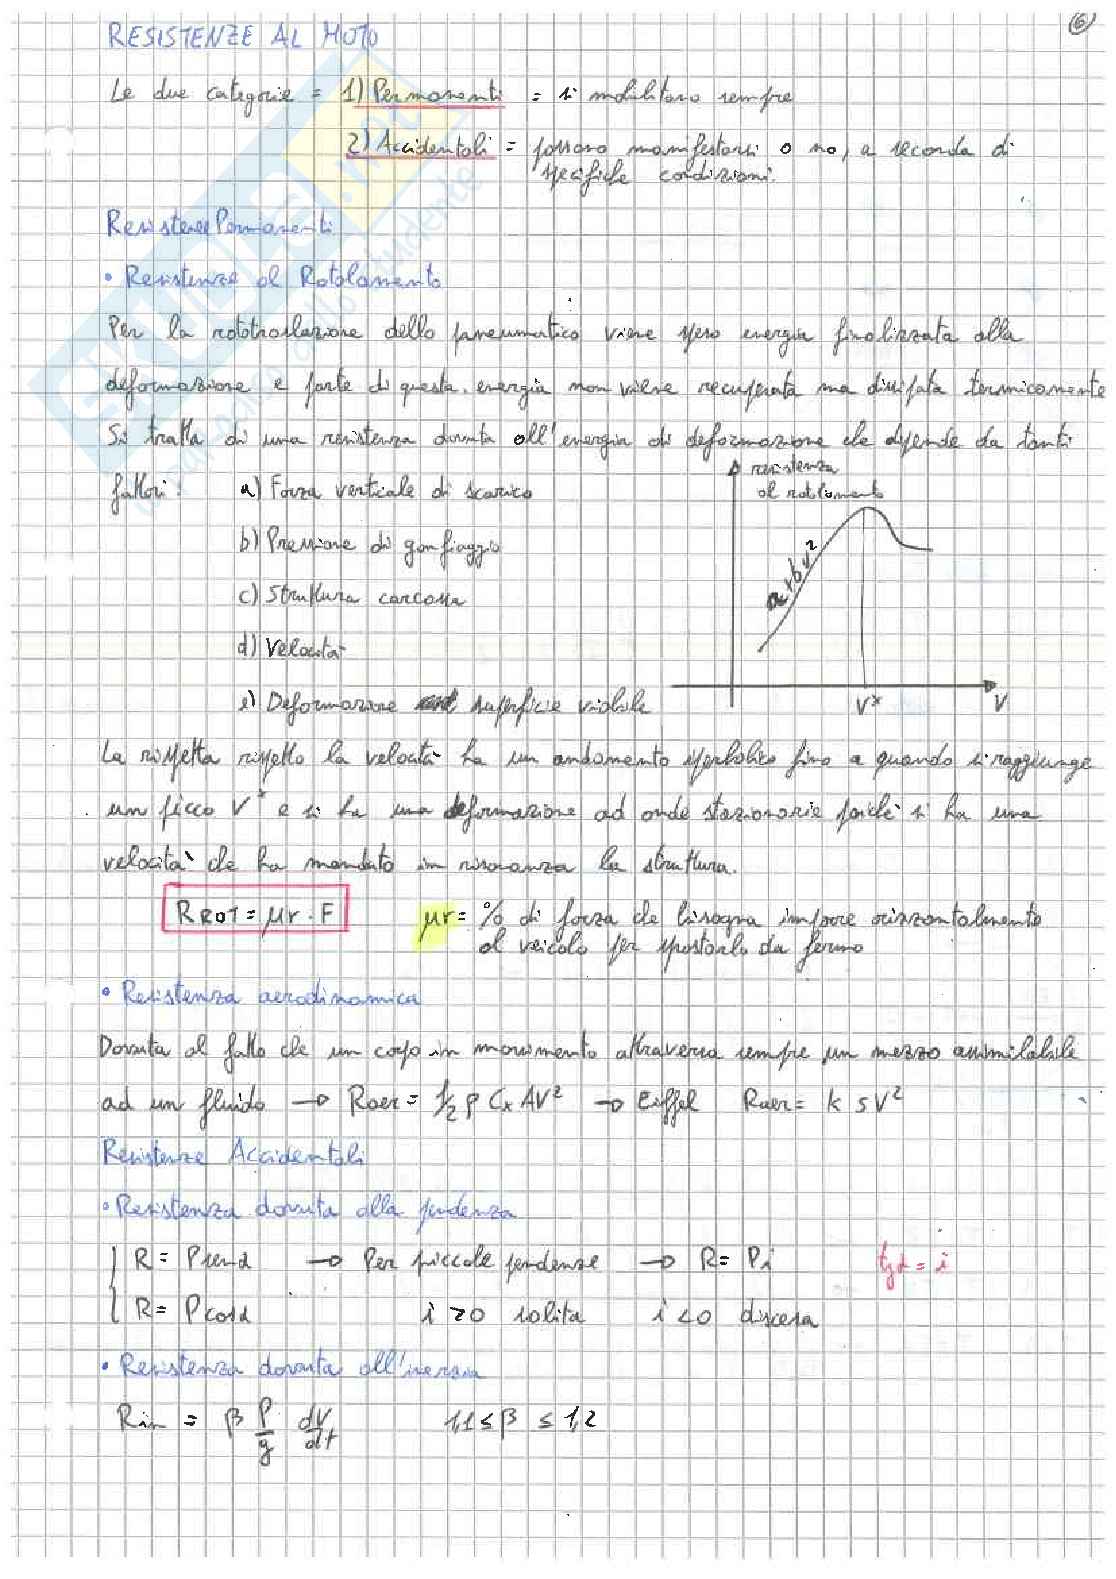 6
RESISTENZE AL MOTO
Le due categorie = 1) Permanenti = si mobilitano sempre
2) Accidentali = possono manifestarsi o no, a seconda di
specifiche condizioni.
Resistenze Permanenti
• Resistenze al Rotolamento
Per la rototraslazione dello pneumatico viene speso energia finalizzata alla
deformazione e parte di questa energia non viene recuperata ma dissipata termicamente
Si tratta di una resistenza dovuta all'energia di deformazione che dipende da tanti
fattori: a) Forza verticale di scarico
b) Pressione di gonfiaggio
c) Struttura carcassa
d) Velocità
e) Deformazione superficie viabile
resistenza
al rotolamento
a+bv²
V*
V
La rispetta rispetto la velocità ha un andamento iperbolico fino a quando si raggiunge
un picco V* e si ha una deformazione ad onde stazionarie poichè si ha una
velocità che ha mandato in risonanza la struttura.
RROT = μr · F μr = % di forza che bisogna imporre orizzontalmente
al veicolo per spostarlo da fermo
• Resistenza aerodinamica
Dovuta al fatto che un corpo in movimento attraversa sempre un mezzo assimilabile
ad un fluido → Raer = 1/2 ρ Cx AV² → Eiffel Raer = k s V²
Resistenze Accidentali
• Resistenza dovuta alla pendenza
R = Psenα → Per piccole pendenze → R = Pi tgα = i
R = Pcosα i > 0 salita i < 0 discesa
• Resistenza dovuta all'inerzia
Rin = β P/g dV/dt 1,1 ≤ β ≤ 1,2
SKUOLA.net